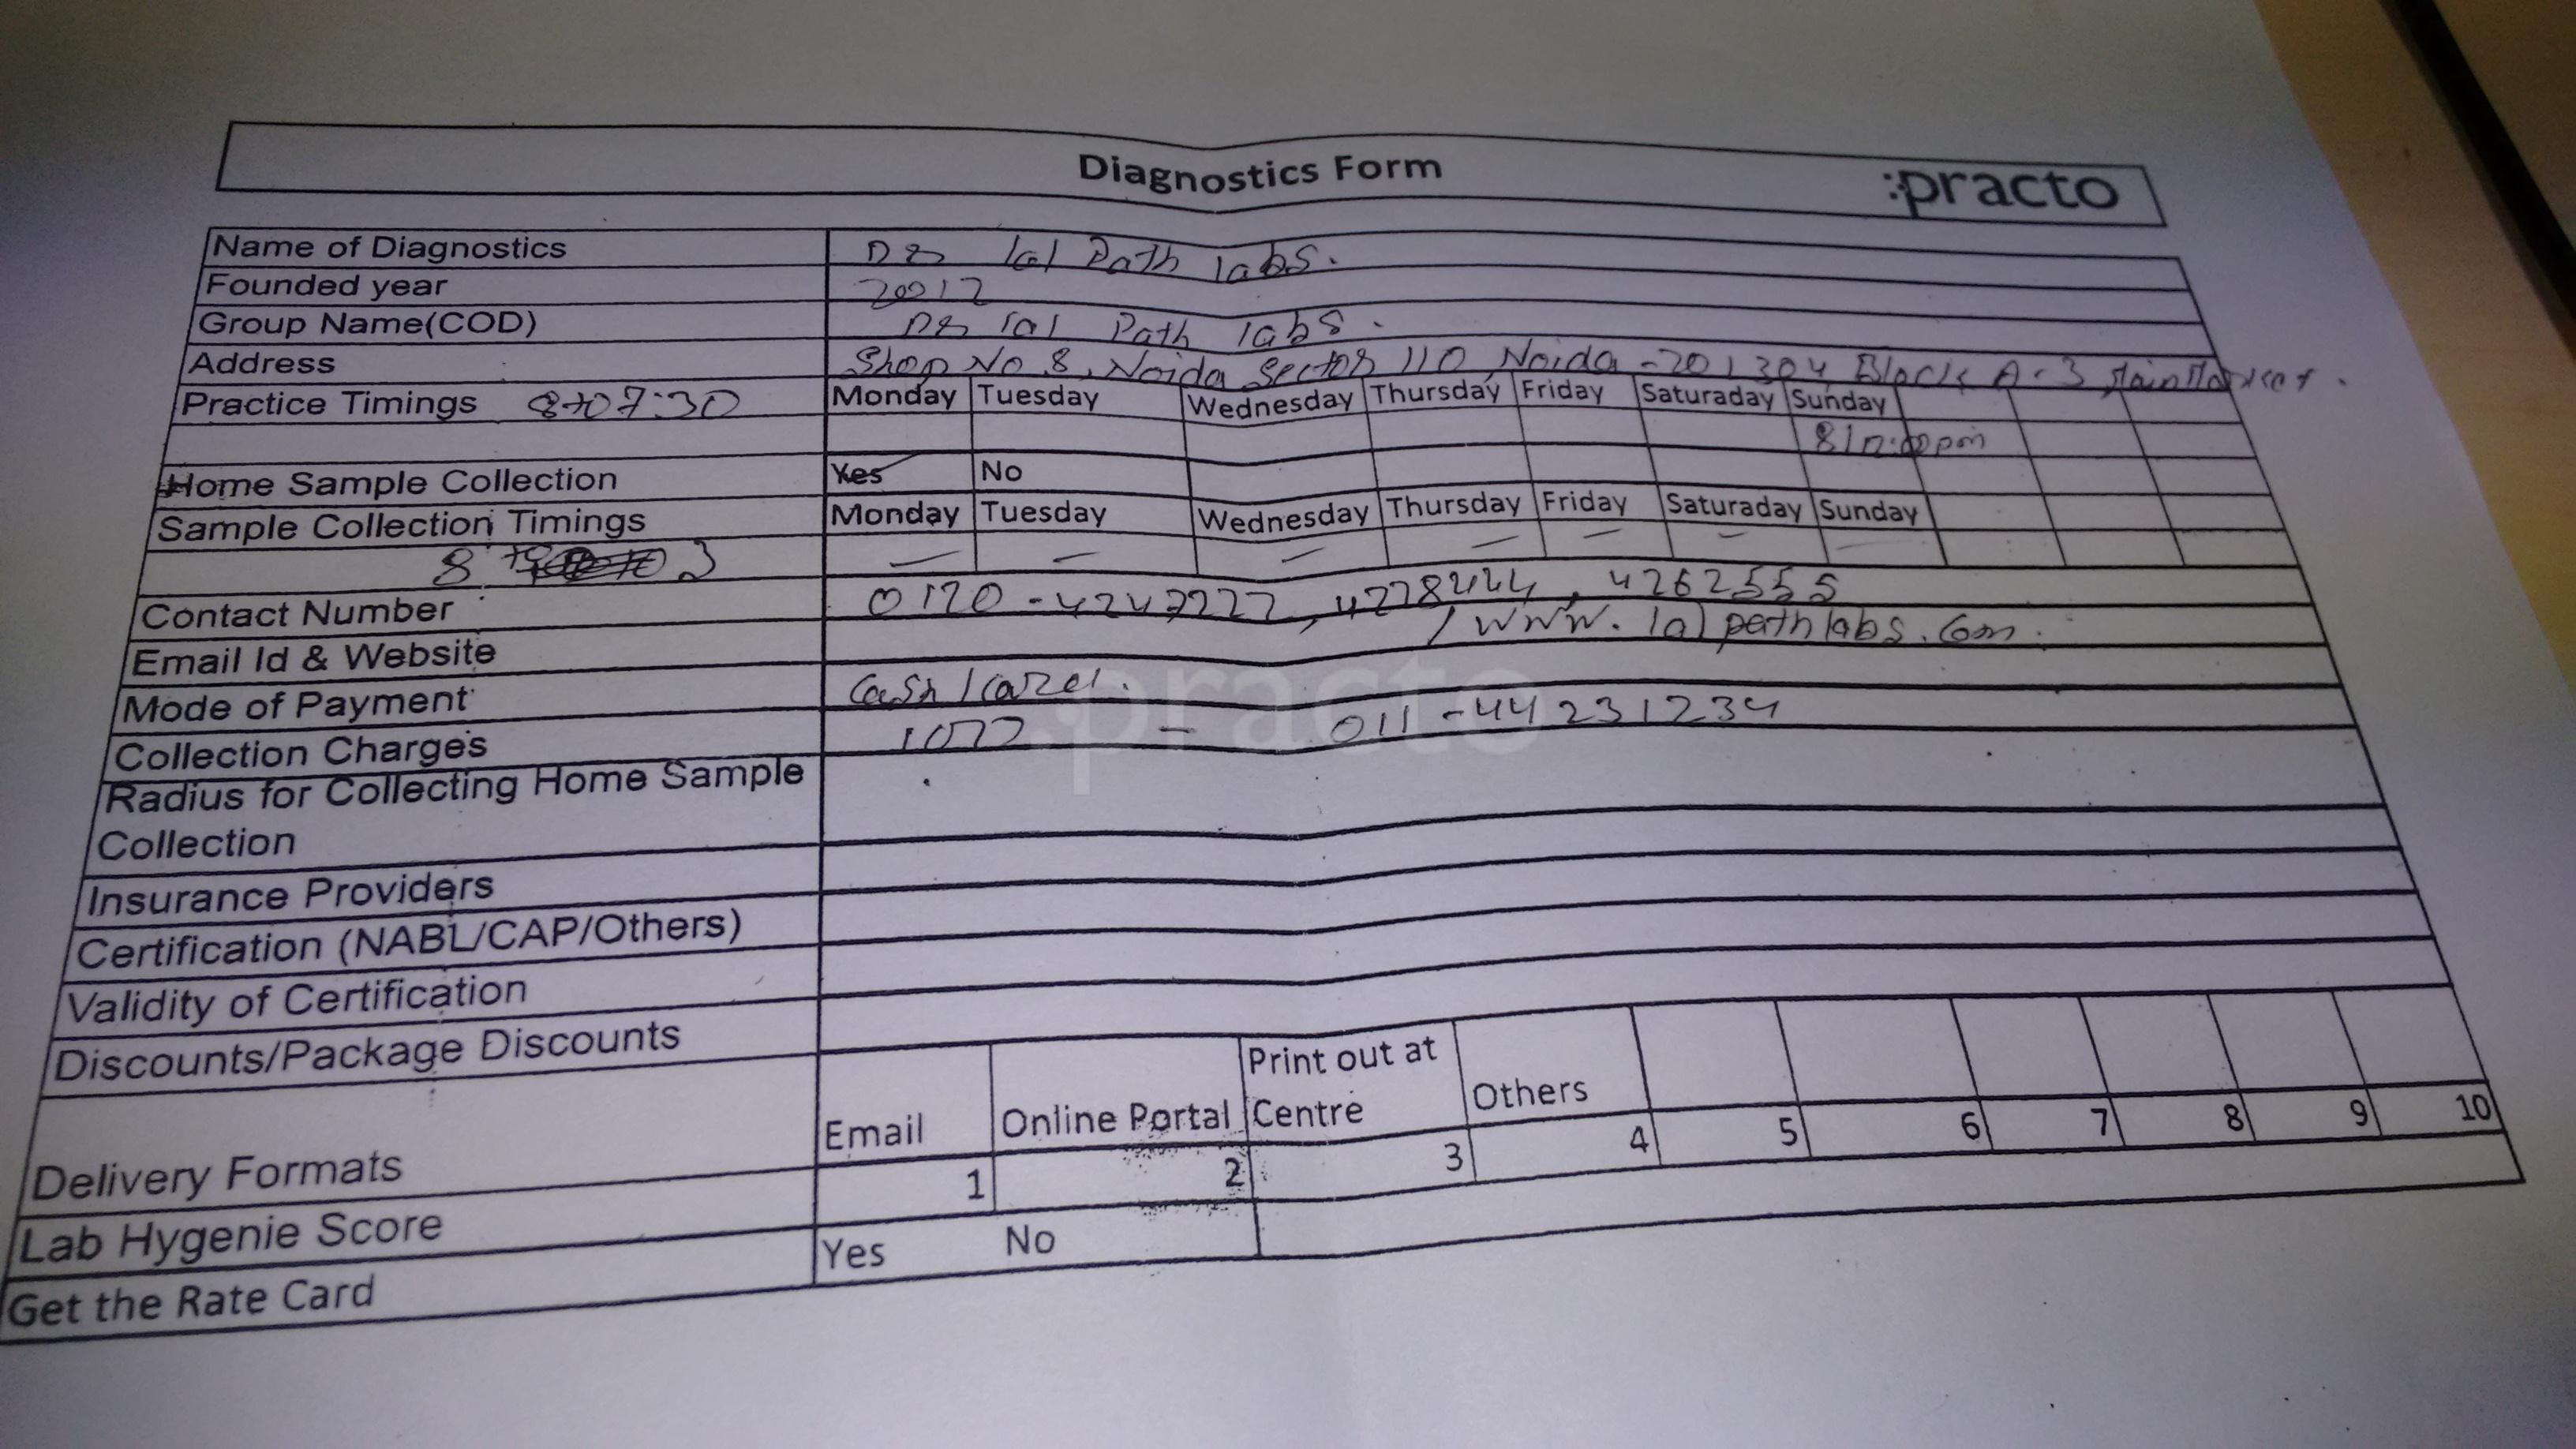 Diagnostics Form :practo
Name of Diagnostics Dr lal Path labs.
Founded year 20012
Group Name(COD) Dr lal Path labs.
Address Shop No 8, Noida Sector 110, Noida - 201304 Block A-3 Main Market.
Practice Timings 8to7:30 Monday Tuesday Wednesday Thursday Friday Saturaday Sunday
Home Sample Collection Yes No
Sample Collection Timings Monday Tuesday Wednesday Thursday Friday Saturaday Sunday
8 to 3 — — — — — — —
Contact Number 0120 - 4247222, 4278444, 4262555
Email Id & Website / www.lalpathlabs.com.
Mode of Payment Cash / Card.
Collection Charges - 011-44231234
Radius for Collecting Home Sample
Collection
Insurance Providers
Certification (NABL/CAP/Others)
Validity of Certification
Discounts/Package Discounts
Delivery Formats Email Online Portal Print out at Centre Others
Lab Hygenie Score 1 2 3 4 5 6 7 8 9 10
Get the Rate Card Yes No
:practo